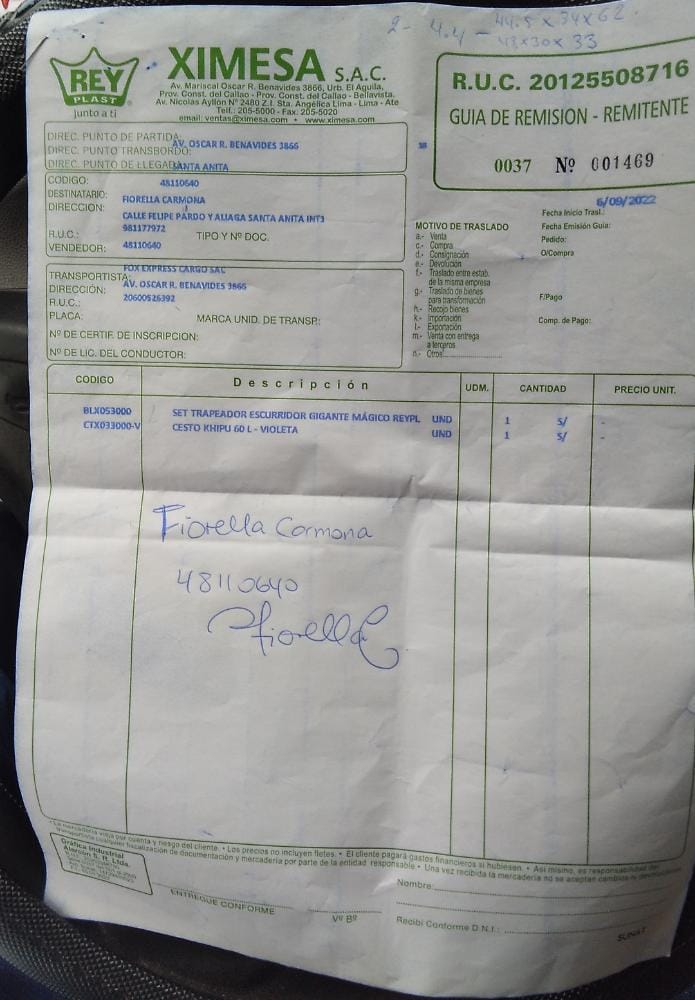 2- 4.4 - 44.5 x 34 x 62
48x30x 33
REY
PLAST
junto a ti
XIMESA S.A.C.
Av. Mariscal Oscar R. Benavides 3866, Urb. El Aguila,
Prov. Const. del Callao - Prov. Const. del Callao - Bellavista.
Av. Nicolas Ayllón N° 2480 Z.I. Sta. Angélica Lima - Lima - Ate
Telf.: 205-5000 - Fax: 205-5020
email: ventas@ximesa.com • www.ximesa.com
R.U.C. 20125508716
GUIA DE REMISION - REMITENTE
0037 Nº 001469
DIREC. PUNTO DE PARTIDA: AV. OSCAR R. BENAVIDES 3866
DIREC. PUNTO TRANSBORDO:
DIREC. PUNTO DE LLEGADA: SANTA ANITA
CODIGO: 48110640
DESTINATARIO: FIORELLA CARMONA
DIRECCION: CALLE FELIPE PARDO Y ALIAGA SANTA ANITA INT3
981177972
R.U.C.: TIPO Y Nº DOC.
VENDEDOR: 48110640
6/09/2022
Fecha Inicio Trasl.:
Fecha Emisión Guia:
Pedido:
O/Compra
F/Pago
Comp. de Pago:
MOTIVO DE TRASLADO
a.- Venta
c.- Compra
d.- Consignación
e.- Devolución
f.- Traslado entre estab.
de la misma empresa
g.- Traslado de bienes
para transformación
h.- Recojo bienes
k.- Importación
l.- Exportación
m.- Venta con entrega
a terceros
n.- Otros
TRANSPORTISTA: FOX EXPRESS CARGO SAC
DIRECCIÓN: AV. OSCAR R. BENAVIDES 3866
R.U.C.: 20600526392
PLACA: MARCA UNID. DE TRANSP.:
Nº DE CERTIF. DE INSCRIPCION:
Nº DE LIC. DEL CONDUCTOR:
CODIGO Descripción UDM. CANTIDAD PRECIO UNIT.
BLX053000 SET TRAPEADOR ESCURRIDOR GIGANTE MÁGICO REYPL UND 1 S/ -
CTX033000-V CESTO KHIPU 60 L - VIOLETA UND 1 S/ -
Fiorella Carmona
48110640
fiorella
• La mercadería viaja por cuenta y riesgo del cliente. • Los precios no incluyen fletes. • El cliente pagará gastos financieros si hubiesen. • Asi mismo, es responsabilidad del
transportista cualquier fiscalización de documentación y mercadería por parte de la entidad responsable • Una vez recibida la mercadería no se aceptan cambios ni devoluciones
Gráfica Industrial
Alarcón S. R. Ltda.
ENTREGUE CONFORME
Vº Bº
Nombre:
Recibi Conforme D.N.I.:
SUNAT